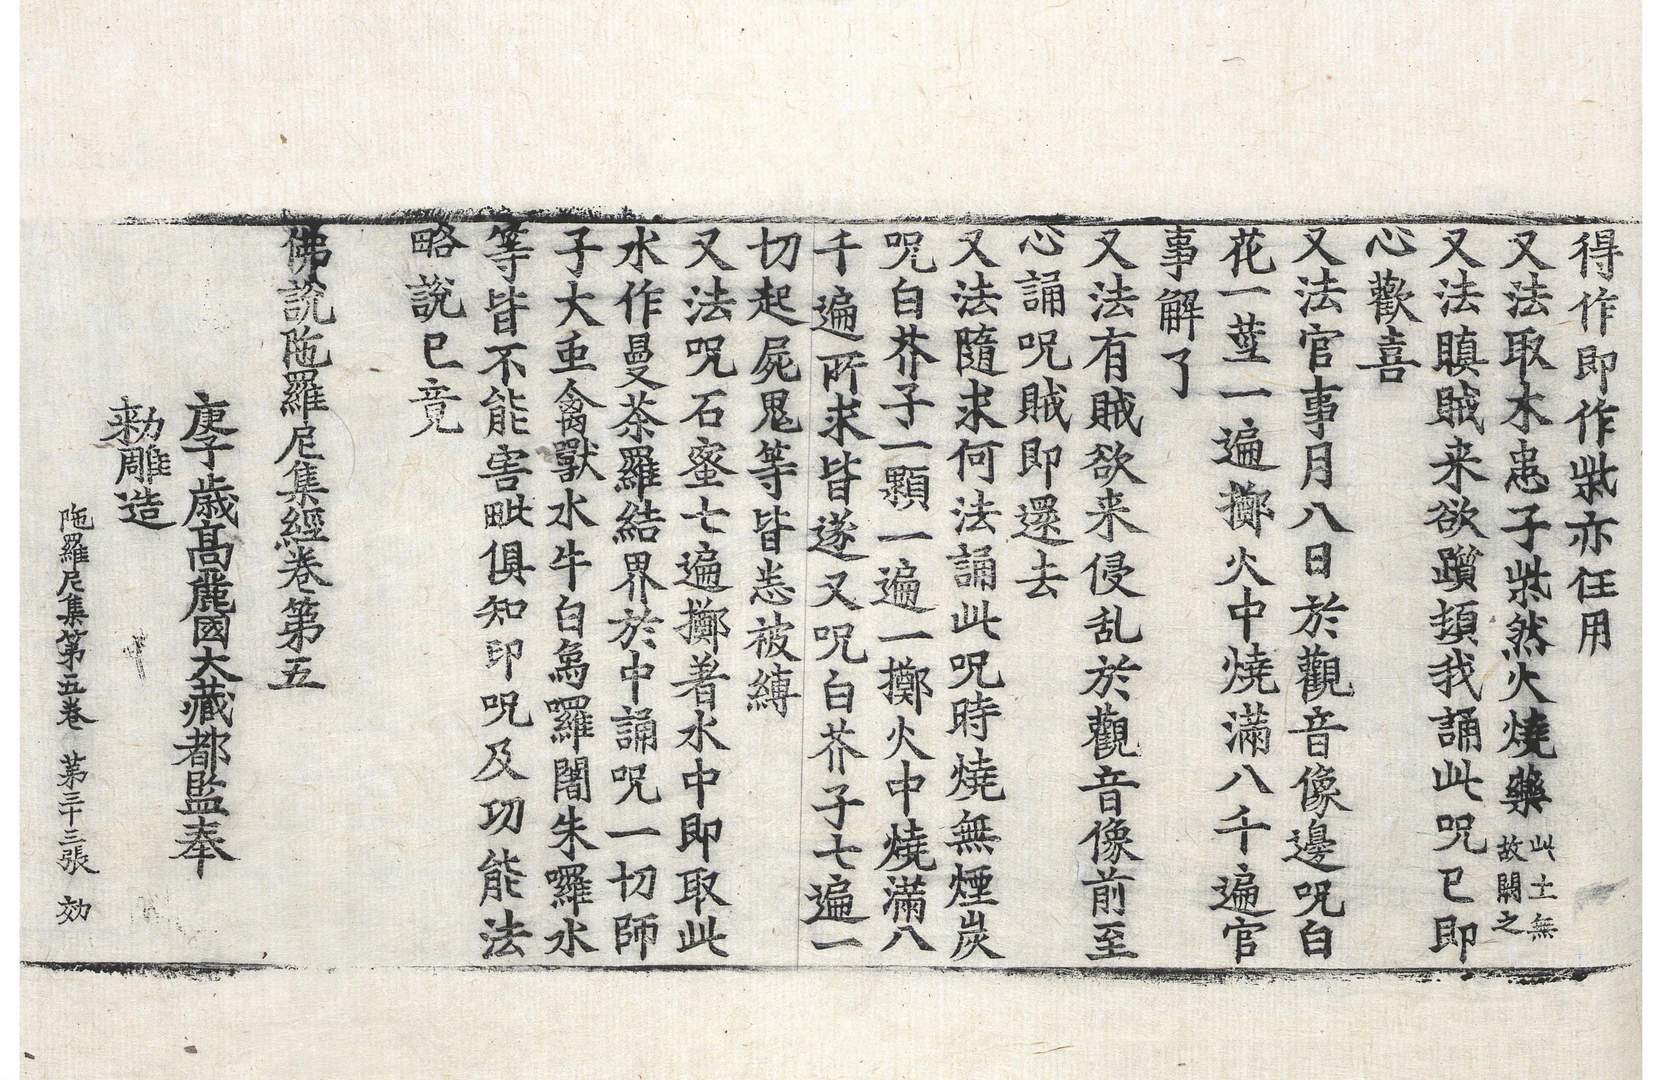 得作即作柴亦任用
又法取木患子柴然火燒藥此土無故闕之
又法瞋賊来欲躓頓我誦此呪已即
心歡喜
又法官事月八日於觀音像邊呪白
花一莖一遍擲火中燒滿八千遍官
事解了
又法有賊欲来侵乱於觀音像前至
心誦呪賊即還去
又法隨求何法誦此呪時燒無煙炭
呪白芥子一顆一遍一擲火中燒滿八
千遍所求皆遂又呪白芥子七遍一
切起屍鬼等皆悉被縛
又法呪石蜜七遍擲著水中即取此
水作曼荼羅結界於中誦呪一切師
子大虫禽獸水牛白烏囉闍朱囉水
等皆不能害毗俱知印呪及功能法
略說已竟
佛說陁羅尼集經卷第五
庚子歲高麗國大藏都監奉
勑雕造
陁羅尼集第五卷 第三十三張 効